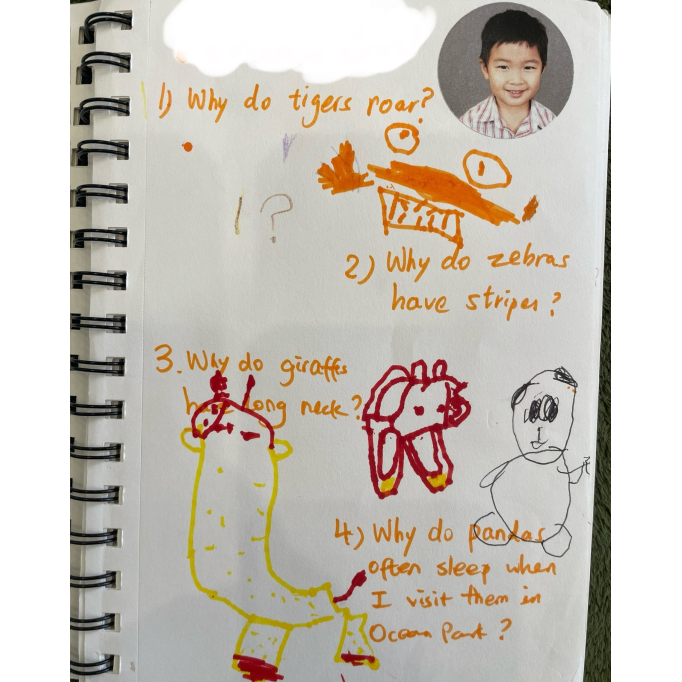 1) Why do tigers roar?
1 ?
2) Why do zebras
have stripes?
3. Why do giraffes
have long neck?
4) Why do pandas
often sleep when
I visit them in
Ocean Park?